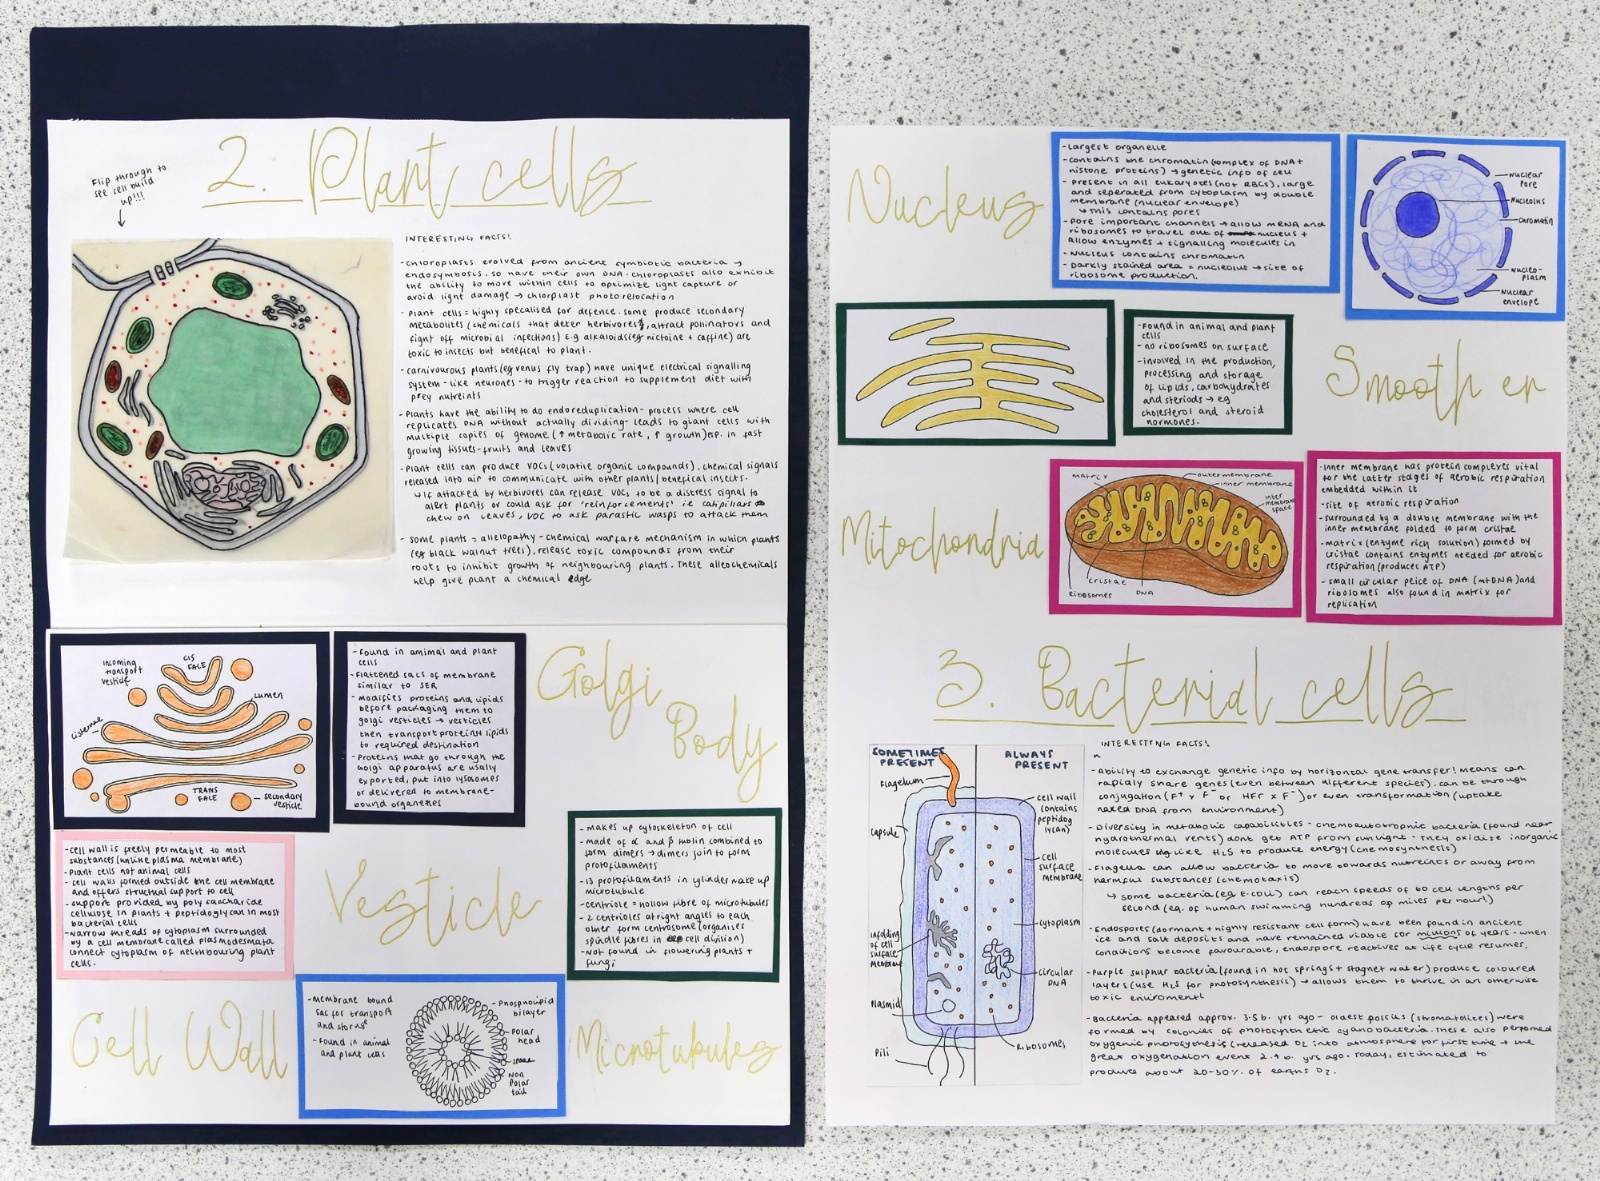 2. Plant cells
Flip through to
see cell build
up!!!
INTERESTING FACTS!
-chloroplasts evolved from ancient symbiotic bacteria →
endosymbosis. so have their own DNA. chloroplasts also exhibit
the ability to move within cells to optimize light capture or
avoid light damage → chlorplast photorelocation
- Plant cells = highly specalised for defence. some produce secondary
metabolites (chemicals that deter herbivores, attract pollinators and
fight off microbial infections) E.g alkaloids (eg nictoine + caffine) are
toxic to insects but benefical to plant.
- carnivourous plants (eg venus fly trap) have unique electrical signalling
system - like neurones - to trigger reaction to supplement diet with
prey nutreints
- Plants have the ability to do endoreduplication - process where cell
replicates DNA without actually dividing - leads to giant cells with
multiple copies of genome (↑ metabolic rate, ↑ growth) esp. in fast
growing tissues - fruits and leaves
- Plant cells can produce VOCs (volative organic compounds). chemical signals
released into air to communicate with other plants/benefical insects.
↳ if attacked by herbivores can release VOCs to be a distress signal to
alert plants or could ask for 'reinforcements' i.e catipillars
chew on leaves, VOC to ask parastic wasps to attack them
- some plants = allelopathy - chemical warfare mechanism in which plants
(eg black walnut trees), release toxic compounds from their
roots to inhibit growth of neighbouring plants. These alleochemicals
help give plant a chemical edge
incoming
transport
vesticle
CIS
FACE
Lumen
cisternae
TRANS
FACE
secondary
vesticle
- Found in animal and plant
cells
- Flattened sacs of membrane
similar to SER
- modifies proteins and lipids
before packaging them to
golgi vesticles → vesticles
then transport proteins/lipids
to required destination
- Proteins that go through the
Golgi apparatus are usally
exported, put into lysosomes
or delivered to membrane-
bound organelles
Golgi
Body
-cell wall is freely permeable to most
substances (unlike plasma membrane)
- Plant cells not animal cells
- cell walls formed outside the cell membrane
and offers structual support to cell
- support provided by polysaccharide
cellulose in plants + peptidoglycan in most
bacterial cells
-Narrow threads of cytoplasm surrounded
by a cell membrane called plasmodesmata
connect cytoplasm of neithbouring plant
cells.
Vesticle
- makes up cytoskeleton of cell
- made of α and β tublin combined to
form dimers → dimers join to form
protofilaments
- 13 protofilaments in cylinder make up
microtubule
- centriole = hollow fibre of microtubules
- 2 centrioles at right angles to each
other form centrosome (organises
spindle fibres in cell division)
- Not found in flowering plants +
fungi
Cell Wall
- Membrane bound
sac for transport
and storage
- Found in animal
and plant cells
- Phospholipid
bilayer
Polar
head
space
Non
Polar
tail
Microtubules
Nucleus
-Largest organelle
- contains the chromatin (complex of DNA +
histone proteins) → genetic info of cell
- Present in all eukaryotes (not RBCs), large
and seperated from cytoplasm by double
membrane (nuclear envelope)
↳ this contains pores
- Pore important channels → allow mRNA and
ribosomes to travel out of nucleus +
allow enzymes + signalling molecules in
- Nucleus contains chromatin
- Darkly stained area = nucleolus → site of
ribosome production.
Nuclear
Pore
Nucleolus
chromatin
Nucleo-
plasm
Nuclear
envelope
- Found in animal and plant
cells
- no ribosomes on surface
- involved in the production,
processing and storage
of lipids, carbohydrates
and steriods → eg
cholesterol and steroid
hormones.
Smooth er
Mitochondria
matrix
outer membrane
inner membrane
inter
membrane
space
cristae
Ribosomes
DNA
- Inner membrane has protein complexes vital
for the latter stages of aerobic respiration
embedded within it
- site of aerobic respiration
- surrounded by a double membrane with the
inner membrane folded to form cristae
- matrix (enzyme rich solution) formed by
cristae contains enzymes needed for aerobic
respiration (produces ATP)
- small circular peice of DNA (mtDNA) and
ribosomes also found in matrix for
replication
3. Bacterial cells
SOMETIMES
PRESENT
ALWAYS
PRESENT
Flagellum
capsule
infolding
of cell
surface
membrane
Plasmid
Pili
cell wall
(contains
peptidog
lycan)
cell
surface
membrane
cytoplasm
circular
DNA
Ribosomes
INTERESTING FACTS!
- Ability to exchange genetic info by horizontal gene transfer! means can
rapidly share genes (even between different species). can be through
conjugation (F⁺ x F⁻ or HFr x F⁻) or even transformation (uptake
naked DNA from environment)
- Diversity in metabolic capabilities - chemoautotrophic bacteria (found near
hydrothermal vents) dont get ATP from sunlight - they oxidise inorganic
molecules like H₂S to produce energy (chemosynthesis)
- Flagella can allow baccteria to move towards nutreints or away from
harmful substances (chemotaxis)
↳ some bacteria (eg. E-coli) can reach speeds of 60 cell lengths per
second (eq. of human swimming hundreds of miles per hour!)
- Endospores (dormant + highly resistant cell form) have been found in ancient
ice and salt deposits and have remained viable for millions of years - when
conditions become favourable, endospore reactives at life cycle resumes.
- Purple sulphur bacteria (found in hot springs + stagnet water) produce coloured
layers (use H₂S for photosynthesis) → allows them to thrive in an otherwise
toxic enviroment!
- Bacteria appeared approx. 3.5 b. yrs ago - oldest fossils (stromatolites) were
formed by colonies of photosynthetic cyanobacteria. These also perfomed
oxygenic photosynthesis (released O₂ into atmosphere for first time → the
great oxygenation event 2.4 b. yrs ago. Today, estimated to
produce about 20-30% of earths O₂.